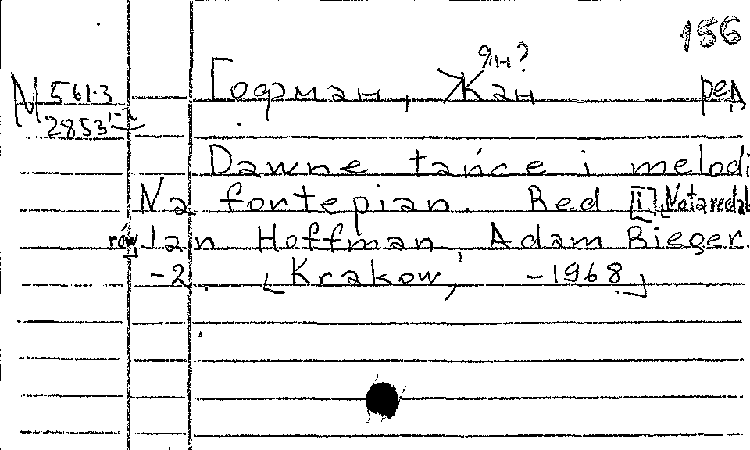 156
Ян?
Гофман, Жан ред
М 561·3
2853
Dawne tańce i melodi
Na fortepian. Red [i] Nota redak
rów] Jan Hoffman, Adam Rieger.
-2. [Krakow, -1968]